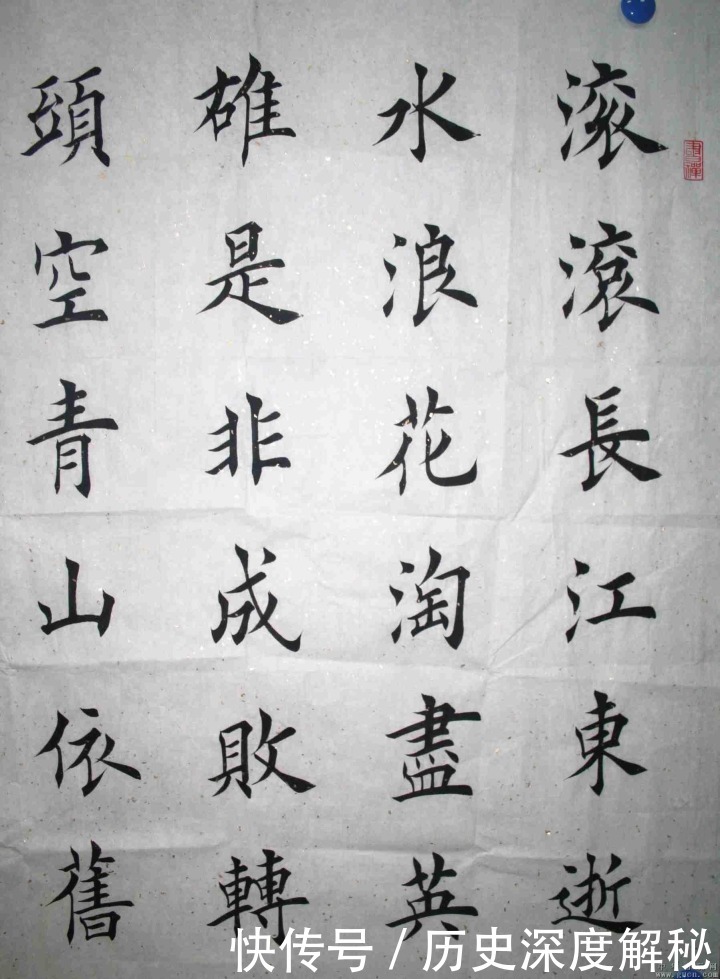 滚滾長江東逝
水浪花淘盡英
雄是非成敗轉
頭空青山依舊
快传号 / 历史深度解秘